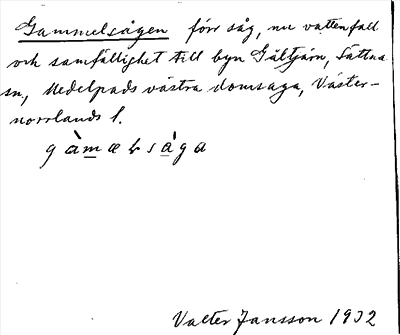 Gammelsågen förr såg, nu vattenfall
och samfällighet till byn Gältjärn, Sättna
sn, Medelpads västra domsaga, Väster-
norrlands l.
gàmælsåga
Valter Jansson 1932